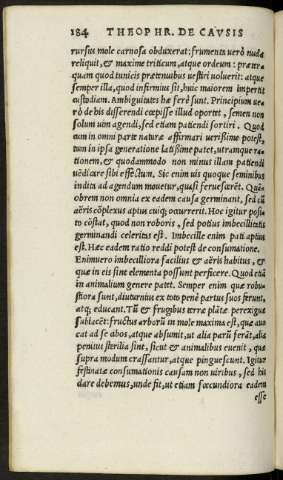 184 THEOPHR. DE CAVSIS
rursus mole carnosa obduxerat: frumenta uerò nuda
reliquit, & maxime triticum, atque ordeum: præter
quam quod tunicis prætenuibus uestiri uoluerit: atque
semper illa, quod infirmius sit, huic maiorem impertit
custodiam. Ambiguitates hæ ferè sunt. Principium ue
rò de his disserendi cœpisse illud oportet, semen non
solum uim agendi, sed etiam patiendi sortiri. Quod
cum in omni parte naturæ affirmari uerissime potest,
tum in ipsa generatione latissime patet, utramque ra=
tionem, & quodammodo non minus illam patiendi
uēdicare sibi effectum. Sic enim uis quoque seminibus
indita ad agendum mouetur, quasi feruesceret. Quā=
obrem non omnia ex eadem causa germinant, sed cū
aëris cōplexus aptus cuiq; occurrerit. Hoc igitur posi=
to cōstat, quod non roboris, sed potius imbecillitatis
germinandi celeritas est. Imbecille enim pati aptius
est. Hæc eadem ratio reddi potest de consumatione.
Enimuero imbecilliora facilius & aëris habitus, &
quæ in eis sint elementa possunt perficere. Quod etiā
in animalium genere patet. Semper enim quæ robu=
stiora sunt, diuturnius ex toto penè partus suos ferunt,
atq; educant. Tū & frugibus terræ plātæ perexiguæ
sublacēt: fructus arborū in mole maxima est, quæ una
cat ad se abos, atque absumit, ut alia parū ferāt, alia
penitus sterilia sint, sicut & animalibus euenit, quæ
supra modum crassantur, atque pinguescunt. Igitur
festinatæ consumationis causam non uiribus, sed his
dare debemus, unde fit, ut etiam fœcundiora eadem
esse